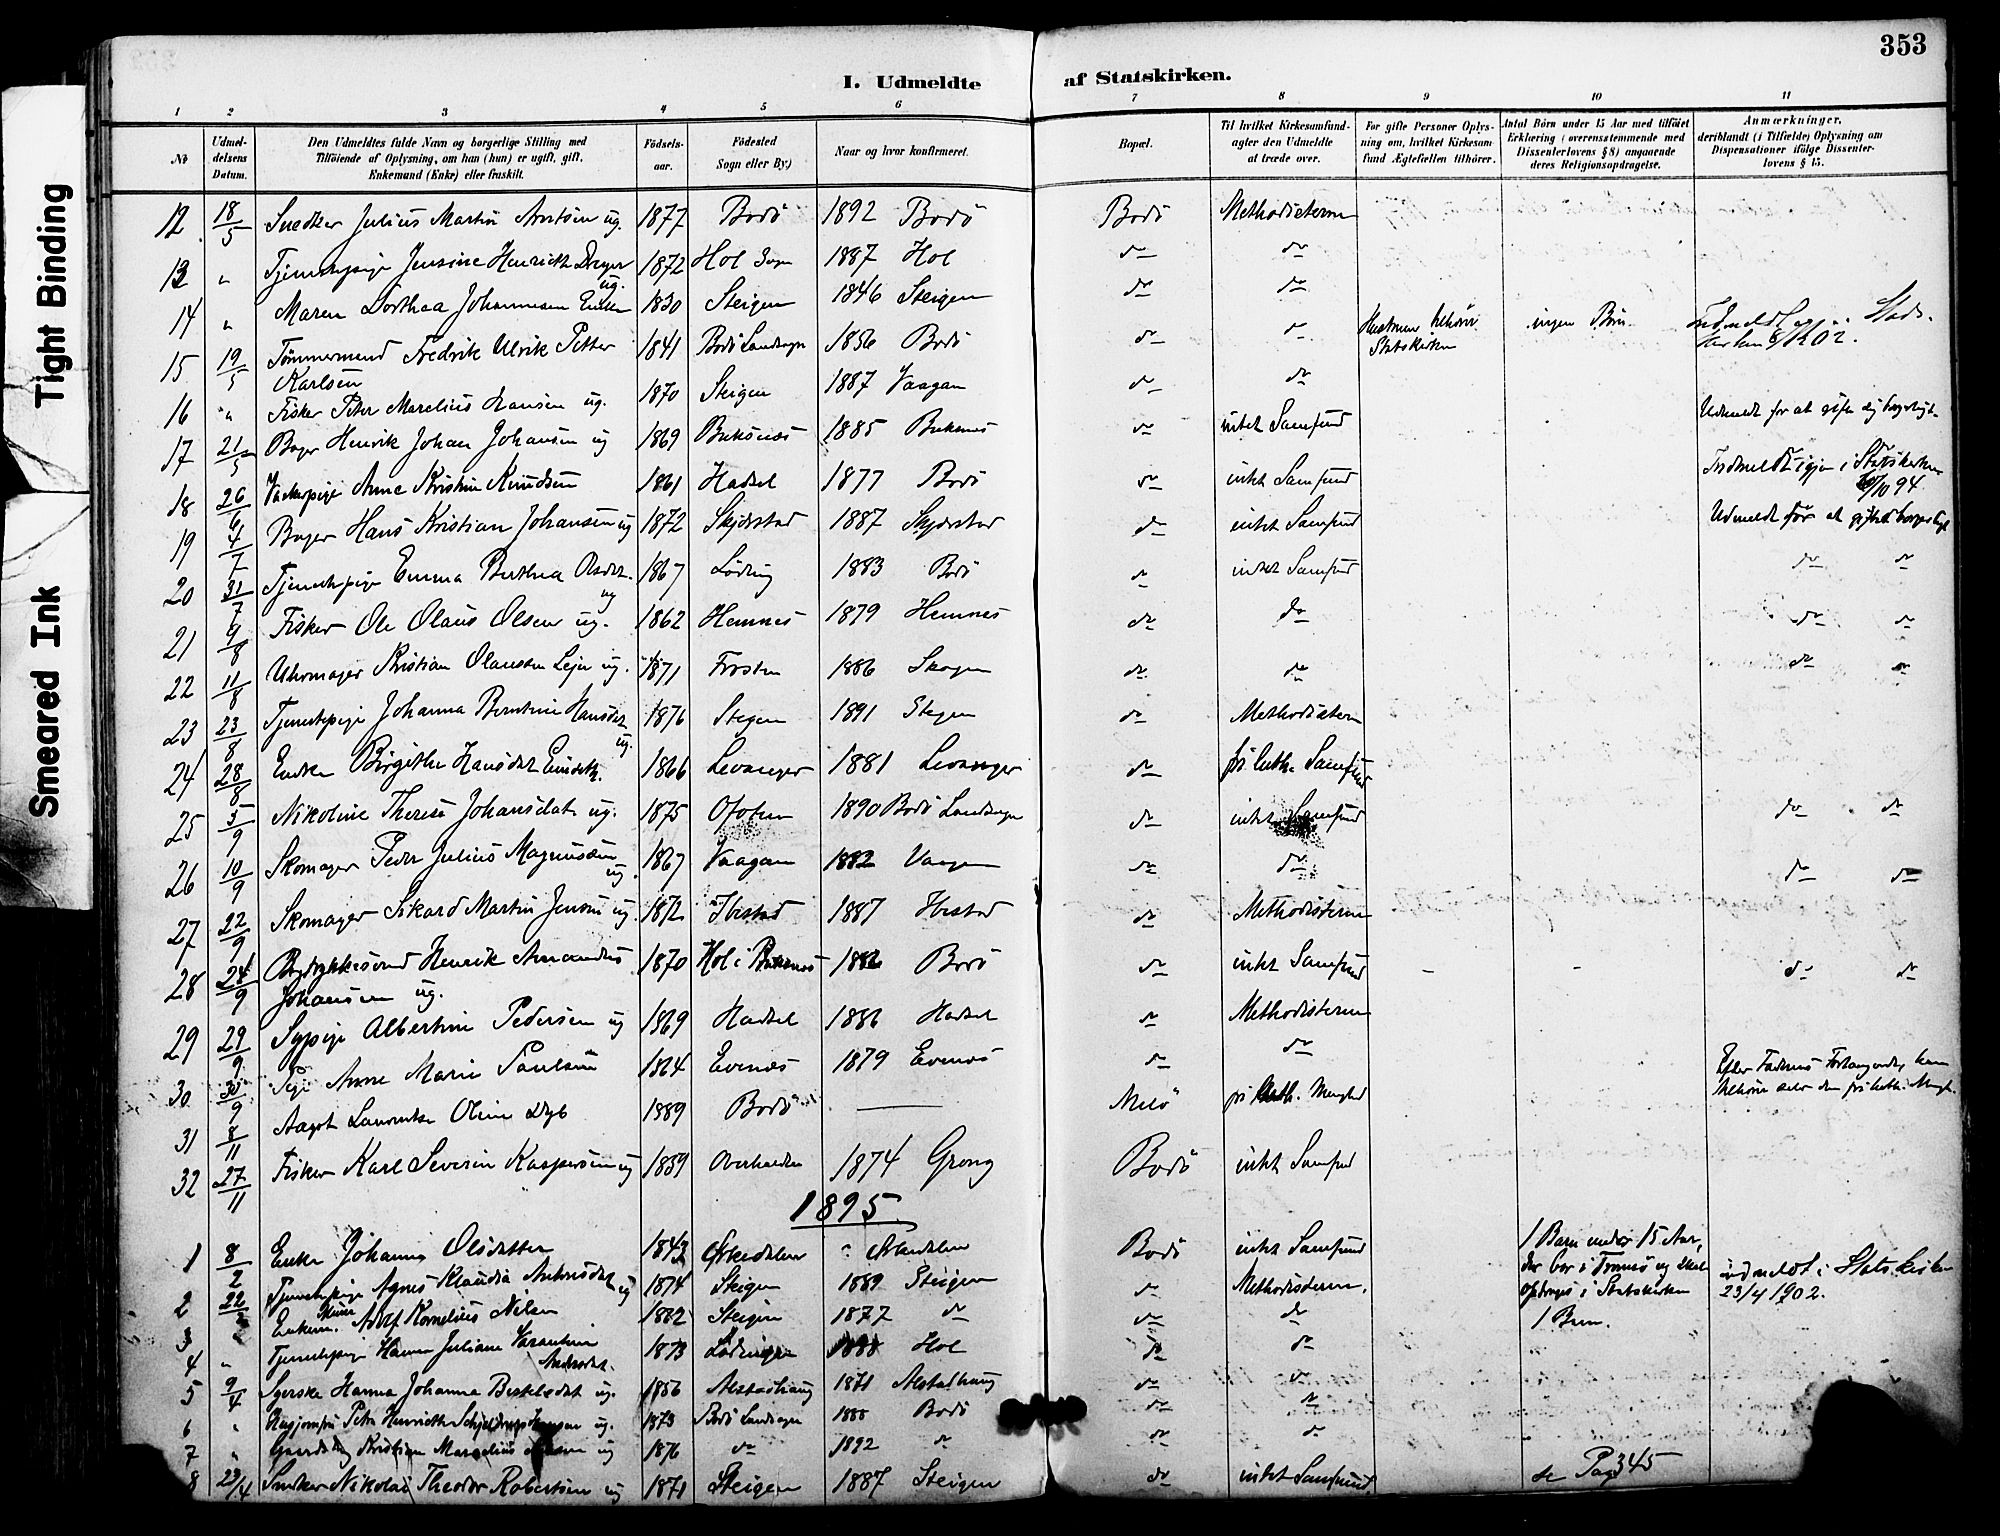 353
I. Udmeldte af Statskirken.
1 2 3 4 5 6 7 8 9 10 11
No
Udmeldelsens Datum.
Den Udmeldtes fulde Navn og borgerlige Stilling med Tilföiende af Oplysning, om han (hun) er ugift, gift, Enkemand (Enke) eller fraskilt.
Födselsaar.
Födested Sogn eller By.)
Naar og hvor konfirmeret.
Bopæl.
Til hvilket Kirkesamfund agter den Udmeldte at træde over.
For gifte Personer Oplysning om, hvilket Kirkesamfund Ægtefællen tilhörer.
Antal Börn under 15 Aar med tilföiet Erklæring i overensstemmende med Dissenterlovens § 8) angaaende deres Religionsopdragelse.
Anmærkninger, deriblandt (i Tilfælde) Oplysning om Dispensationer ifölge Dissenterlovens § 15.
12 18/5 Snedker Julius Martin Arntsen ug. 1877 Bodö 1892 Bodö Bodö Methodisterne
13 " Tjenestepige Jensine Henrikke Dreyer ug. 1872 Hol Sogn 1887 Hol do do
14 " Maren Dorthea Johannesen Enke 1830 Steigen 1846 Steigen do do
15 19/5 Tömmermand Fredrik Ulrik Petter Karlsen 1841 Bodö Landsogn 1856 Bodö do do Hustruen tilhörer Statskirken ingen Börn Indmeldt Statskirken 02.
16 " Fisker Peter Marelius Hansen ug. 1870 Steigen 1887 Vaagan do do
17 21/5 Bager Henrik Johan Johansen ug 1869 Buksnæs 1885 Buksnes do intet Samfund Udmeldt for at gifte sig borgerligt
18 26/6 Anne Kristine Knudsen 1861 Hadsel 1877 Bodö do intet Samfund Indmeldt igjen i Statskirken /10 94.
19 4/7 Bager Hans Kristian Johansen ug 1872 Skjerstad 1887 Skjerstad do intet Samfund Udmeldt for at giftes borgerligt
20 31/7 Tjenestepige Emma Berthea Olsdt. ug 1867 Löding 1883 Bodö do intet Samfund do do
21 9/8 Fisker Ole Olaus Olsen ug. 1862 Hemnes 1879 Hemnes do do do do
22 11/8 Uhrmager Kristian Olausen Lejn ug. 1871 Frosten 1886 Skogn do do do do
23 23/8 Tjenestepige Johanna Berntine Hansdt. ug. 1876 Stegen 1891 Stegen do Methodisterne
24 28/8 Enke Birgithe Hansdat 1866 Levanger 1881 Levanger do fri luth. Samfund
25 5/9 Nikoline Therese Johansdat ug. 1875 Ofoten 1890 Bodö Landsogn do intet Samfund do do
26 10/9 Skomager Peder Julius Magnussen ug. 1867 Vaagan 1882 Vaagan do do do do
27 22/9 Skomager Sikard Martin Jensen ug 1872 Ibestad 1887 Ibestad do Methodisterne
28 24/9 Henrik Amandus Johansen ug. 1870 Hol i Buksnes 1886 Bodö do intet Samfund - - do do
29 29/9 Sypige Albertine Pedersen ug 1869 Hadsel 1886 Hadsel do Methodisterne
30 30/9 Pige Anne Marie Paulsen 1864 Evenæs 1879 Evenæs do do
31 8/11 Aagot Laurentse Oline Dyb 1889 Bodö — Melö fri luth. Menghed Efter Faderens Forlangende, kun tilhöre den fri luth. Mengh.
32 27/11 Fisker Karl Severin Kaspersen ug 1859 Overhalden 1874 Grong Bodö intet Samfund
1895
1 8/2 Enke Johanna Olsdatter 1843 Ørkedalen " Ørkedalen Bodö intet Samfund 1 Barn under 15 Aar, der bor i Tromsö og skal opdrages i Statskirken
2 22/2 Tjenestepige Agnes Klaudia Andreasdt. ug 1874 Steigen 1889 Steigen do Methodisterne. indmeldt i Statskirken 23/4 1902.
3 " Enkem. Adolf Kornelius Nilsen 1862 Steigen 1877 do do do 1 Barn.
4 " Tjenestepige Hanna Juliane Andersdt. 1873 Lödingen 1888 Hol do do
5 9/4 Syerske Hanna Johanna ug. 1856 Alstadhaug 1871 Alstadhaug do do
6 " Petra Henriette Schjeldrup Hansen ug. 1873 Bodö Landsogn 1888 Bodö do do
7 " Kristian Marselius ug 1876 do 1892 do do do
8 23/4 Snedker Nikolai Theodor Robertsen ug 1871 Steigen 1887 Steigen do intet Samfund. se Pag 345
Tight Binding
Smeared Ink